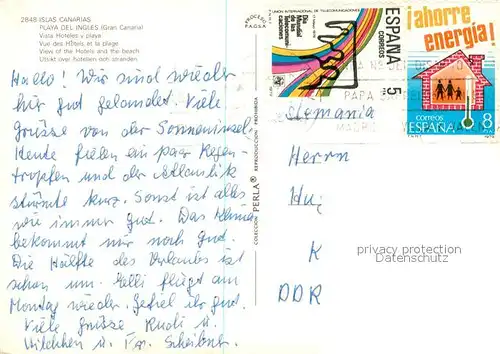 2848 ISLAS CANARIAS
PLAYA DEL INGLES (Gran Canaria)
Vista Hoteles y playa
Vue des Hôtels et la plage
View of the Hotels and the beach
Utsikt över hotellen och stranden
Hallo! Wir sind wieder
hier gut gelandet. Viele
Grüsse von der Sonneninsel.
Heute fielen ein paar Regen-
tropfen und der Atlantik
stürmte kurz. Sonst ist alles
wie immer gut. Das Klima
bekommt mir noch gut.
Die Hälfte des Urlaubs ist
schon um. Helli fliegt am
Montag wieder. Gefiel ihr gut.
Viele Grüsse Rudi u.
COLECCION PERLA® REPRODUCCION PROHIBIDA
UNION INTERNACIONAL DE TELECOMUNICACIONES
Dia mundial de las telecomunicaciones
ESPAÑA
CORREOS
5
¡ahorre energía!
correos
ESPAÑA
8
PTAS
Alemania
Herrn
K
DDR
privacy protection